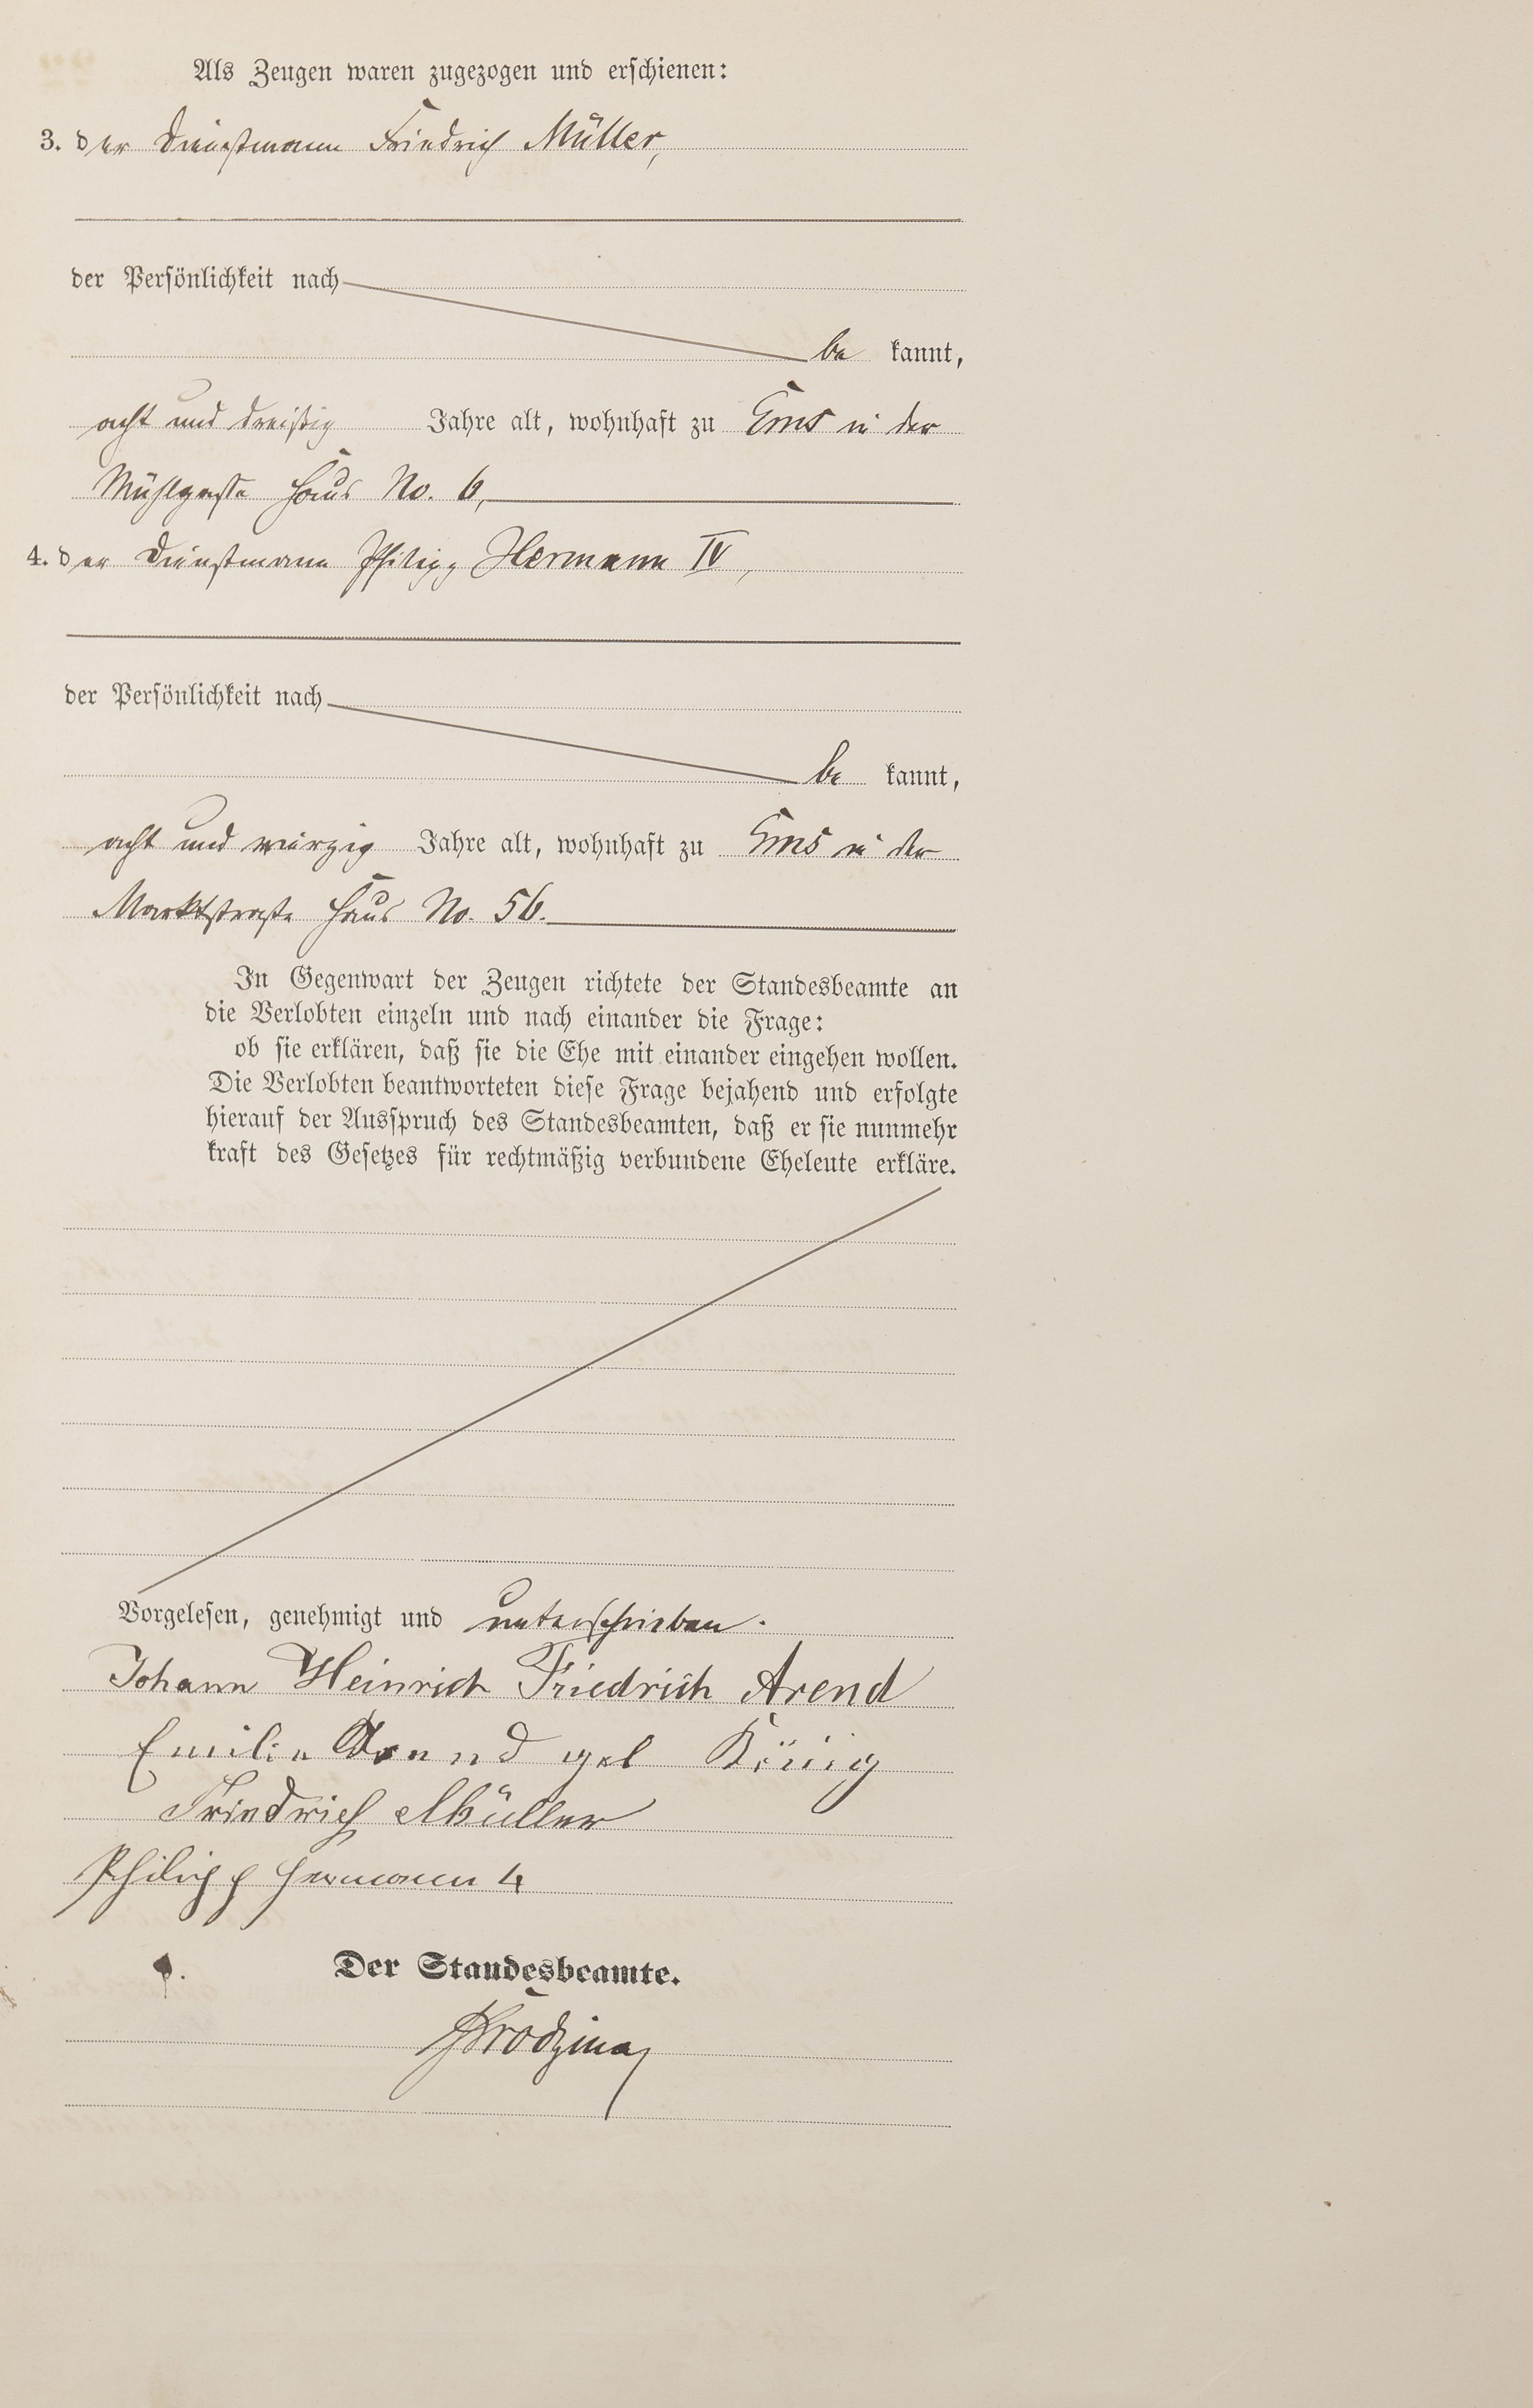 Als Zeugen waren zugezogen und erschienen:
3. der Dienstmann Friedrich Müller,
der Persönlichkeit nach
be kannt,
acht und dreißig Jahre alt, wohnhaft zu Ems in der
Mühlgasse Haus No. 6,
4. der Dienstmann Philipp Hermann IV,
der Persönlichkeit nach
be kannt,
acht und vierzig Jahre alt, wohnhaft zu Ems in der
Marktstraße Haus No. 56.
In Gegenwart der Zeugen richtete der Standesbeamte an
die Verlobten einzeln und nach einander die Frage:
ob sie erklären, daß sie die Ehe mit einander eingehen wollen.
Die Verlobten beantworteten diese Frage bejahend und erfolgte
hierauf der Ausspruch des Standesbeamten, daß er sie nunmehr
kraft des Gesetzes für rechtmäßig verbundene Eheleute erkläre.
Vorgelesen, genehmigt und unterschrieben.
Johann Heinrich Friedrich Arend
Emilie Arend geb König
Friedrich Müller
Philipp Hermann 4
Der Standesbeamte.